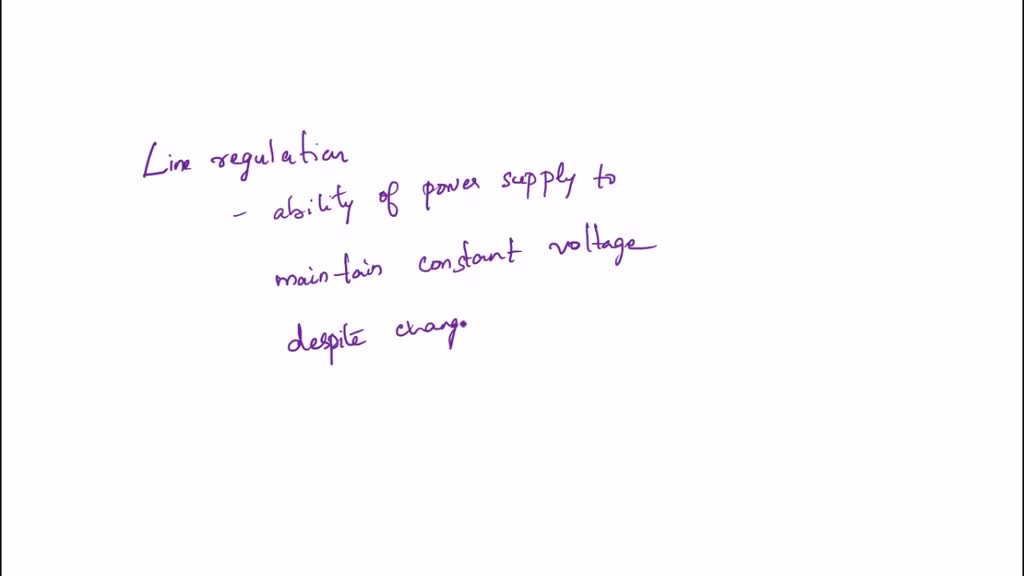 Line regulation
- ability of power supply to
maintain constant voltage
despite chang